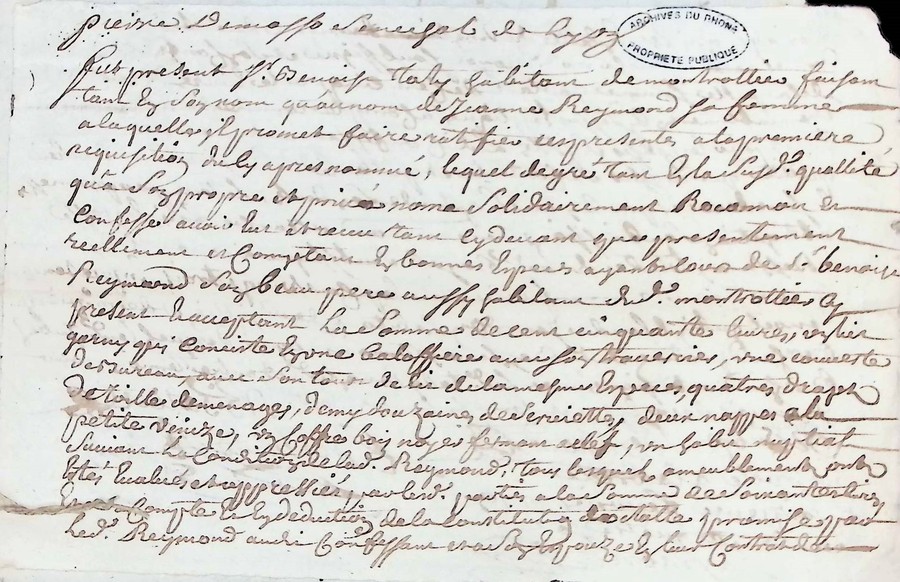 pierre Demasso Senechal de Lyon
ARCHIVES DU RHONE
PROPRIETE PUBLIQUE
fut present Sr. Benoist habitant de montrottier faisant
tant en son nom qu'au nom de Jeanne Reymond sa femme
a laquelle il promet faire ratiffier ces presentes a la premiere
requisition du cy apres nommé, lequel de gré tant en la susd. quallité
qu'a son propre et privé nom solidairement Reconnoit et
Confesse avoir eut et receu tant cy devant que presentement
reellement et Comptant en bonnes Especes ayant cours de Sr. benoist
Reymond son beau pere aussy habitant dud. montrottier cy
present Et acceptant La Somme de cent cinquante livres, un lit
garny qui Conciste en une balossiere avec son traversier, une couverte
de Bureau, avec son tour de lit de la mesme Especes, quatres draps
de toille de menages, demy douzaines de Serviettes, deux nappes a la
petite venize, un Coffre bois noyer fermant a clef, un habit nuptial
suivant la Condition de lad. Reymond, tous lesquels ameublement ont
Estés Evalués et appressiés par lesd. parties a la Somme de Soixante livres
Et a Compte Et en deduction de la Constitution dottalle promise par
led. Reymond aud. Confessant et a son Epouze En leur Contrat de